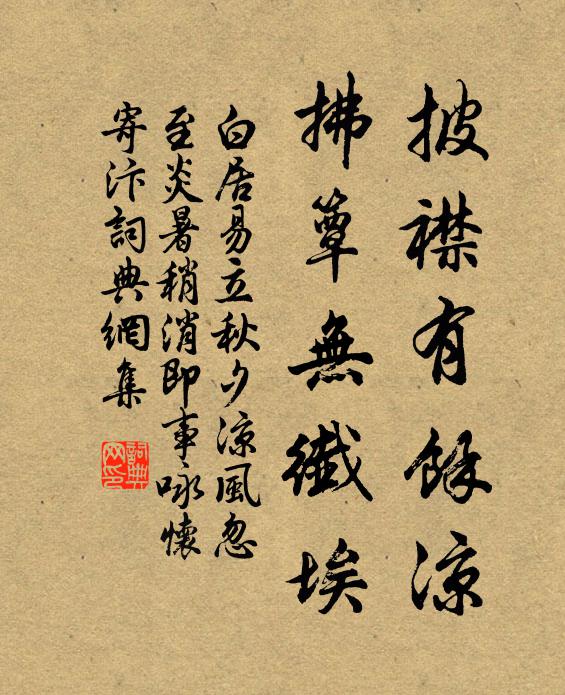 披襟有餘涼
拂簟無纖埃
白居易立秋夕涼風忽
至炎暑稍消即事咏懷
寄汴詞典網集
詞典网印